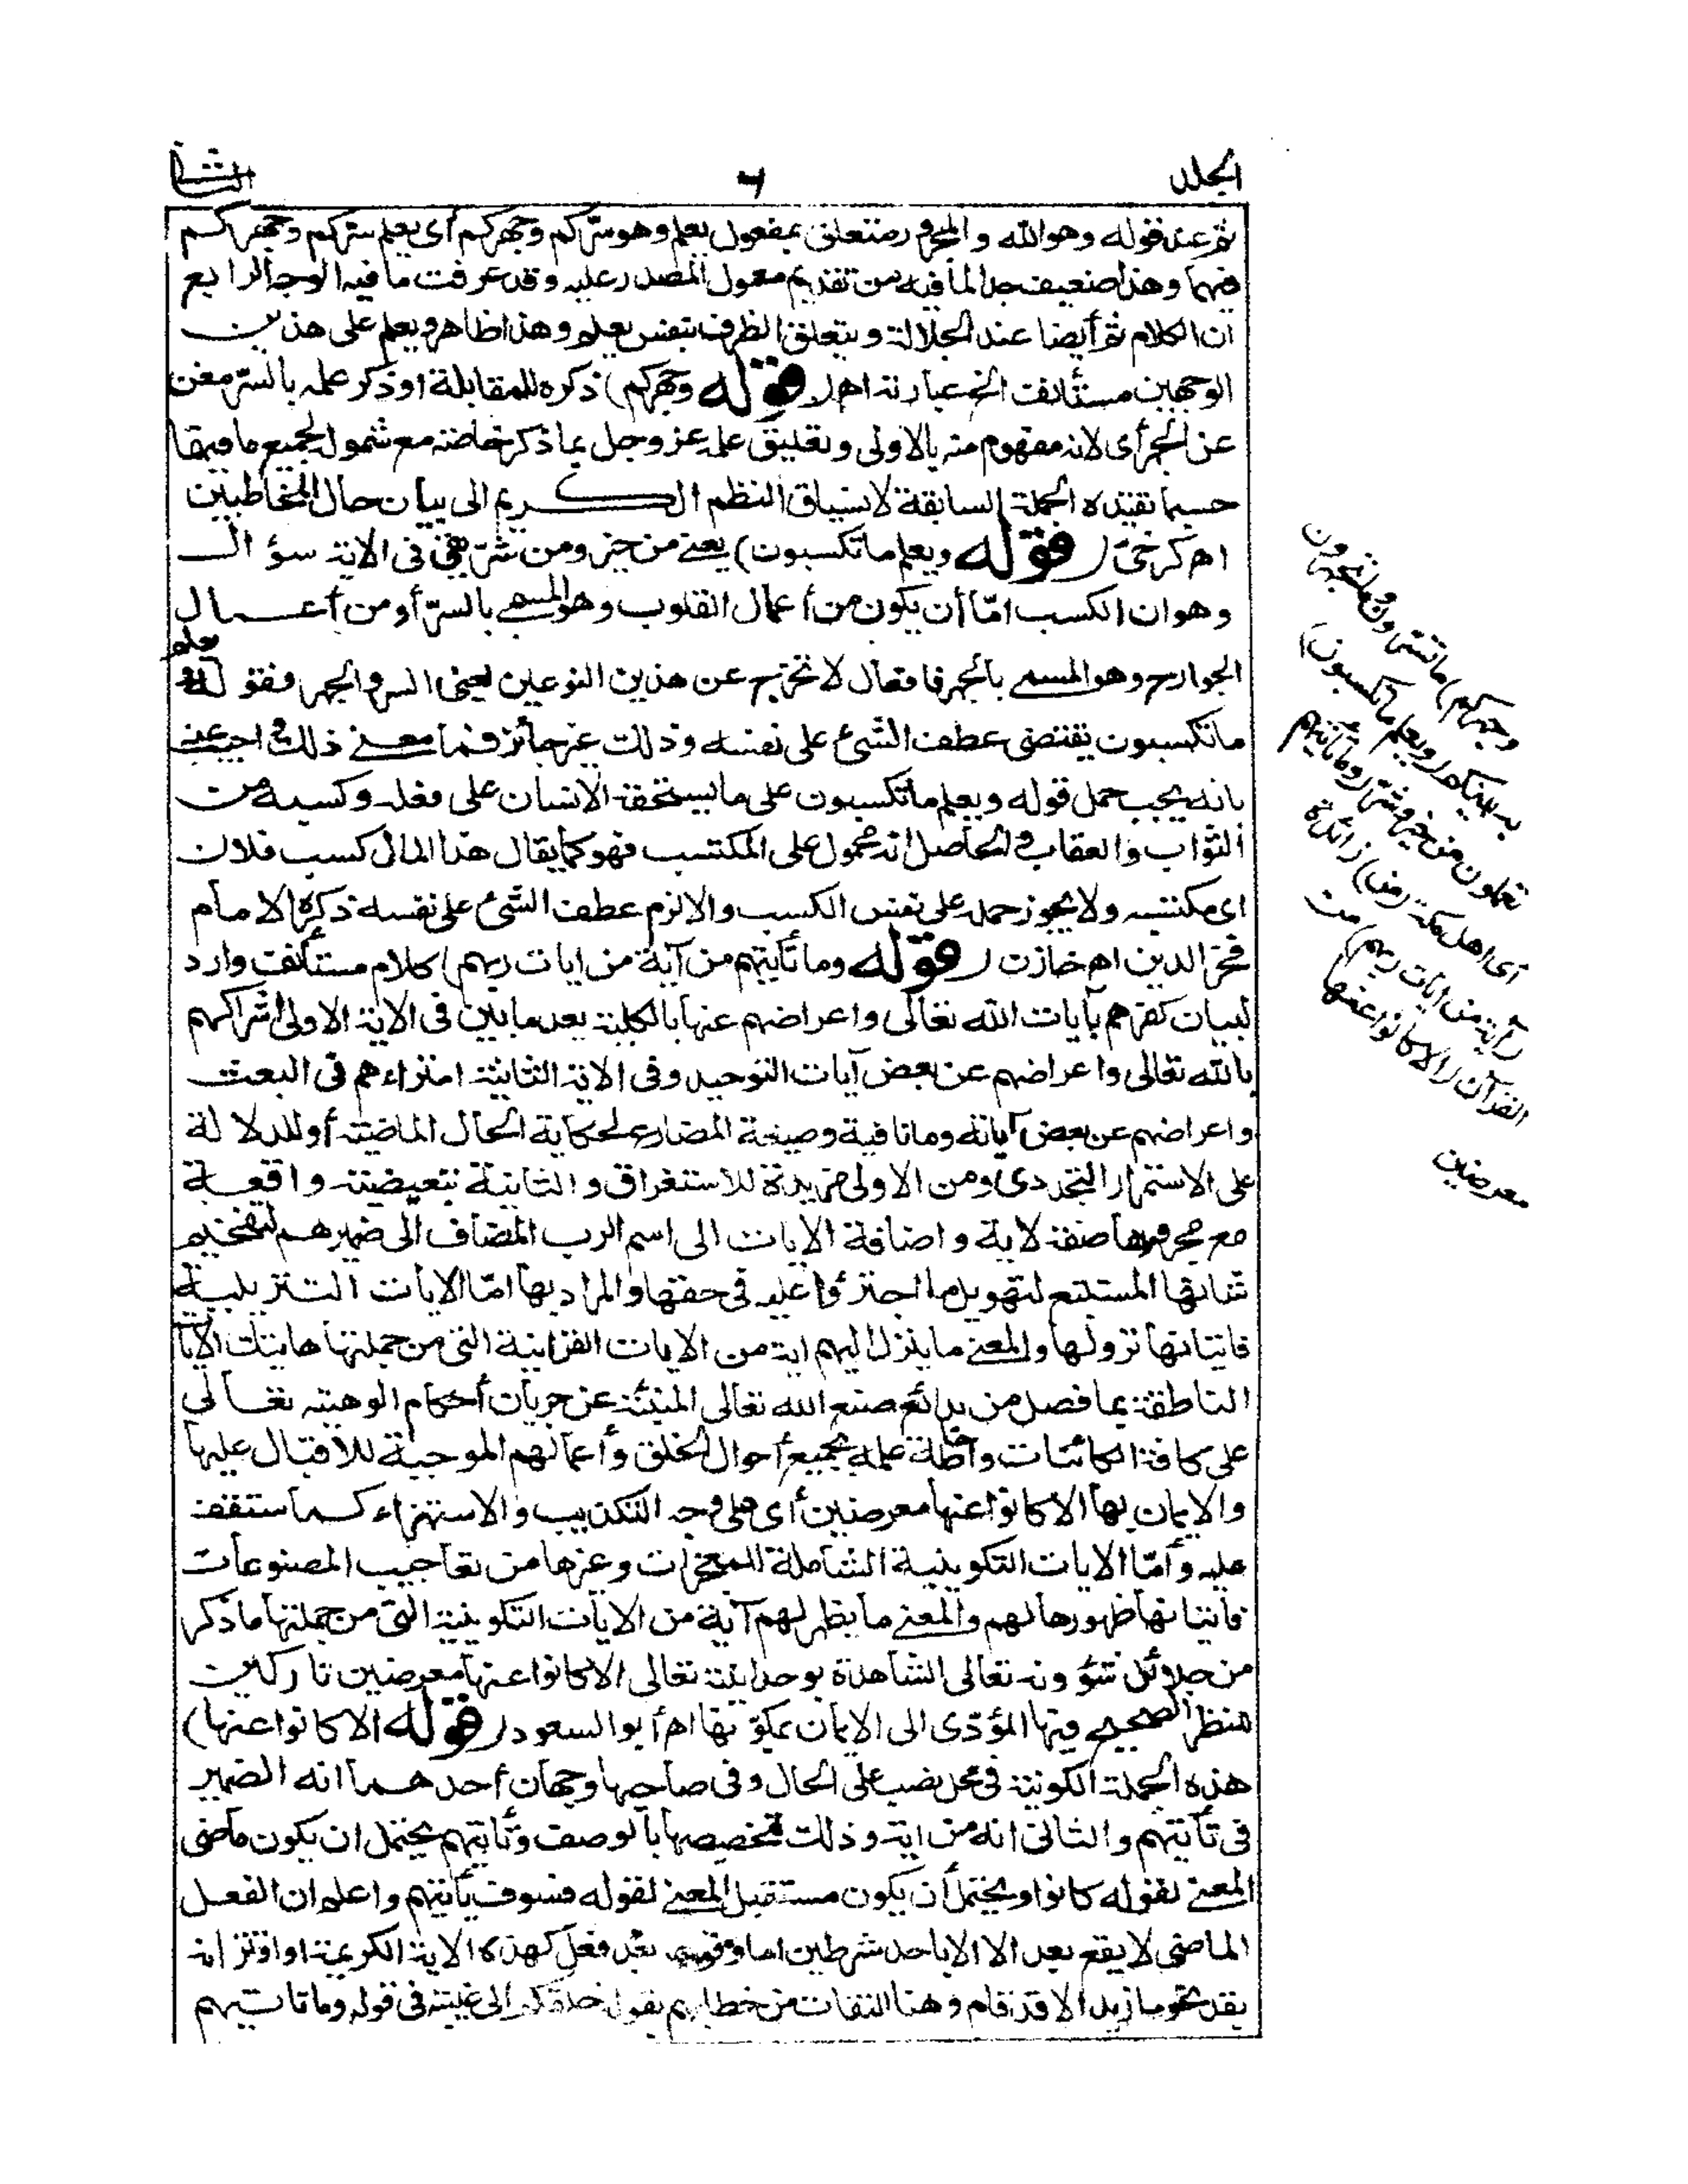 الجلد
٦
الثانى
تم عند قوله وهو الله والمجرور متعلق بمفعول يعلم وهو سرّكم وجهركم أى يعلم سركم وجهركم
فيهما وهذا ضعيف جدا لما فيه من تقديم معمول المصدر عليه وقد عرفت ما فيه الوجه الرابع
ان الكلام تم أيضا عند الجلالة ويتعلق الظرف بنفس يعلم وهذا ظاهر ويعلم على هذين
الوجهين مستأنف انتهت عبارته اهـ (قوله وجهركم) ذكره للمقابلة اوذكر علمه بالسرّ مغن
عن الجهر أى لانه مفهوم منه بالاولى وتعليق علمه عز وجل بما ذكر خاصة مع شموله لجميع ما فيهما
حسبما تفيده الجملة السابقة لانسياق النظم الكريم الى بيان حال المخاطبين
اهـ كرخىّ (قوله ويعلم ما تكسبون) يعنى من خير ومن شرّ بقى فى الاية سؤال
وهو ان الكسب امّا أن يكون من أعمال القلوب وهو المسمى بالسرّ أو من أعمال
الجوارح وهو المسمى بالجهر فالافعال لا تخرج عن هذين النوعين يعنى السر والجهر فقوله يعلم
ما تكسبون يقتضى عطف الشئ على نفسه وذلك غير جائز فما معنى ذلك واجيب عنه
بانه يجب حمل قوله ويعلم ما تكسبون على ما يستحقه الانسان على فعله وكسبه من
الثواب والعقاب والحاصل انه محمول على المكتسب فهو كما يقال هذا المال كسب فلان
اى مكتسبه ولا يجوز حمله على نفس الكسب والا لزم عطف الشئ على نفسه ذكره الامام
فخر الدين اهـ خازن (قوله وما تأتيهم من آية من ايات ربهم) كلام مستأنف وارد
لبيان كفرهم بآيات الله تعالى واعراضهم عنها بالكلية بعد ما بين فى الاية الاولى اشراكهم
بالله تعالى واعراضهم عن بعض آيات التوحيد وفى الاية الثانية امتراءهم فى البعث
واعراضهم عن بعض آياته وما نافية وصيغة المضارع لحكاية الحال الماضية أو للدلالة
على الاستمرار التجددى ومن الاولى مزيدة للاستغراق والثانية تبعيضية واقعة
مع مجرورها صفة لاية واضافة الايات الى اسم الرب المضاف الى ضميرهم لتفخيم
شانها المستتبع لتهويل ما اجترؤا عليه فى حقها والمراد بها امّا الايات التنزيلية
فاتيانها نزولها والمعنى ما ينزل اليهم اية من الايات القرانية التى من جملتها هاتيك الايات
الناطقة بما فصل من بدائع صنع الله تعالى المنبئة عن جريان أحكام الوهيته تعالى
على كافة الكائنات واحاطة علمه بجميع أحوال الخلق وأعمالهم الموجبة للاقبال عليها
والايمان بها الا كانوا عنها معرضين أى على وجه التكذيب والاستهزاء كما ستقف
عليه وأمّا الايات التكوينية الشاملة للمعجزات وغيرها من تعاجيب المصنوعات
فاتيانها ظهورها لهم والمعنى ما يظهر لهم آية من الايات التكوينية التى من جملتها ما ذكر
من جلائل شؤونه تعالى الشاهدة بوحدانيته تعالى الا كانوا عنها معرضين تاركين
للنظر الصحيح فيها المؤدّى الى الايمان بمكوّنها اهـ أبو السعود (قوله الا كانوا عنها)
هذه الجملة الكونية فى محل نصب على الحال وفى صاحبها وجهان أحدهما انه الضمير
فى تأتيهم والثانى انه من اية وذلك لتخصصها بالوصف وتأتيهم يحتمل ان يكون ماضى
المعنى لقوله كانوا ويحتمل أن يكون مستقبل المعنى لقوله فسوف يأتيهم واعلم ان الفعل
الماضى لا يقع بعد الا الا باحد شرطين اما وقوعه بعد فعل كهذه الاية الكريمة او اقترانه
بقد نحو ما زيد الا قد قام وهنا التفات من خطابهم بقوله خلقكم الى غيبته فى قوله وما تاتيهم
وجهركم) ما تسرون وما تجهرون
به بينكم (ويعلم ما تكسبون)
تعملون من خير وشر (وما تأتيهم)
أى اهل مكة (من) زائدة
(آية من ايات ربهم) من
القرآن (الا كانوا عنها
معرضين